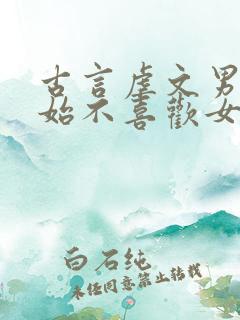 古言虐文男
始不喜歡女
白石纯
未经同意禁止转载